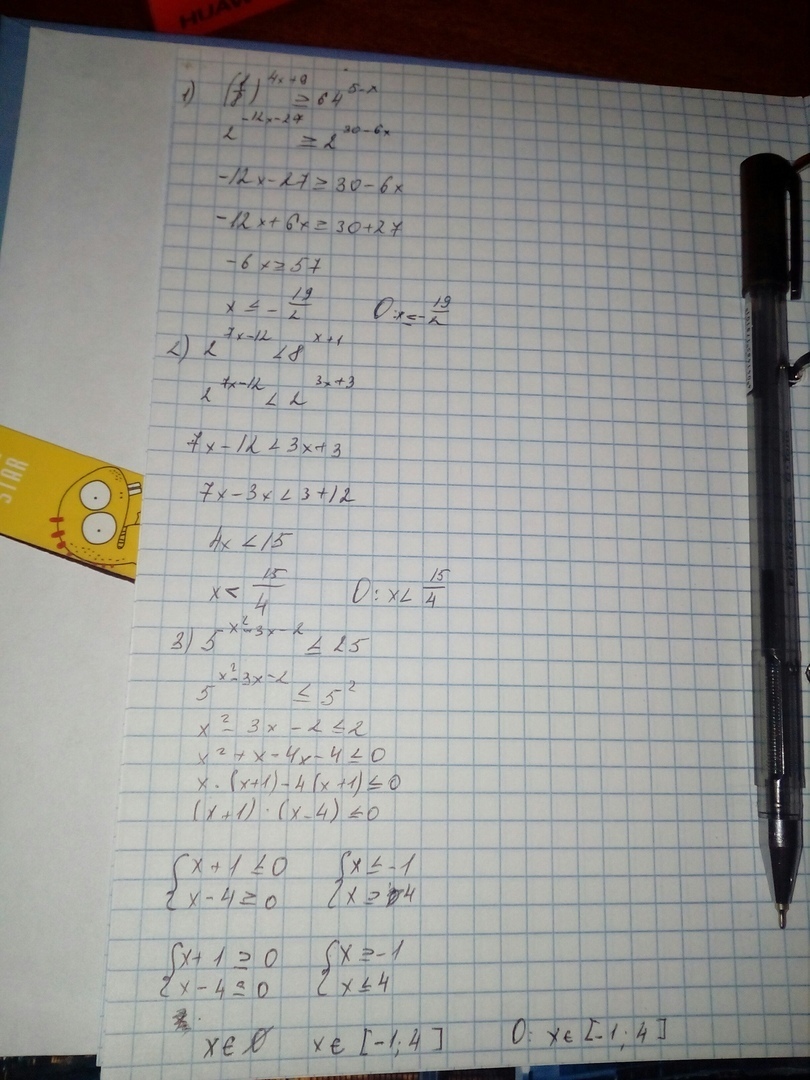 HUAW
STAR
1) (1/8)^(4x+9) ≥ 64^(5-x)
2^(-12x-27) ≥ 2^(30-6x)
-12x-27 ≥ 30-6x
-12x+6x ≥ 30+27
-6x ≥ 57
x ≤ - 19/2 O: x ≤ - 19/2
2) 2^(7x-12) < 8^(x+1)
2^(7x-12) < 2^(3x+3)
7x-12 < 3x+3
7x-3x < 3+12
4x < 15
x < 15/4 O: x < 15/4
3) 5^(x²-3x-2) ≤ 25
5^(x²-3x-2) ≤ 5²
x² - 3x - 2 ≤ 2
x² + x - 4x - 4 ≤ 0
x · (x+1) - 4(x+1) ≤ 0
(x+1) · (x-4) ≤ 0
{ x+1 ≤ 0 { x ≤ -1
x-4 ≥ 0 x ≥ 4
{ x+1 ≥ 0 { x ≥ -1
x-4 ≤ 0 x ≤ 4
x ∈ ∅ x ∈ [-1; 4] O: x ∈ [-1; 4]